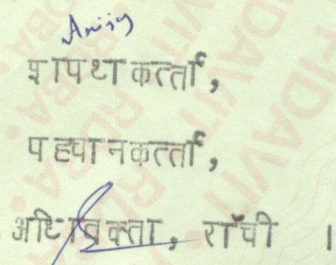 शपथकर्त्ता,
पहचानकर्त्ता,
अधिवक्ता, राँची ।